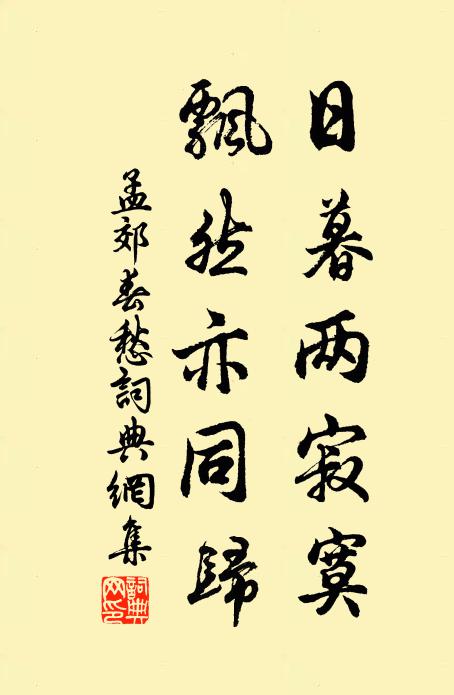 日暮两寂寞
飘然亦同歸
孟郊春愁詞典網集
詞典網印